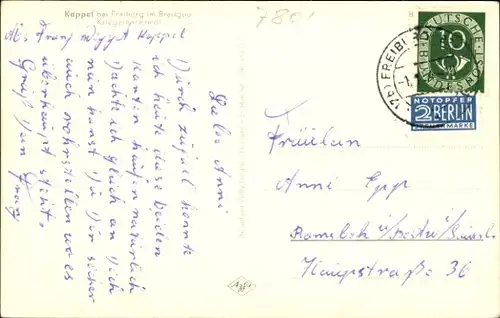 Kappel bei Freiburg im Breisgau
Kriegerehrenmal
7801
Abs. Franz Kappel
Liebe Anni
Durch Zufall konnte
ich heute diese beiden
Karten kaufen natürlich
dachte ich gleich an Dich
nun kannst Du Dir sicher
auch vorstellen wo es
überhaupt steht.
Gruß Dein Franz
DEUTSCHE BUNDESPOST
10
FREIBURG
NOTOPFER
2 BERLIN
STEUERMARKE
Fräulein
Anni Epp
Hauptstraße 36